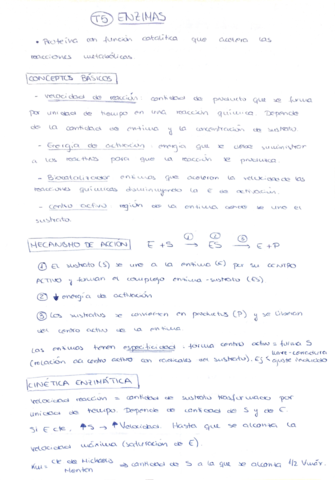 T5 ENZIMAS
• Proteína con función catalítica que acelera las
reacciones metabólicas
CONCEPTOS BÁSICOS
- Velocidad de reacción: cantidad de producto que se forma
por unidad de tiempo en una reacción química. Depende
de la cantidad de enzima y la concentración de sustrato
- Energía de activación: energía que se debe suministrar
a los reactivos para que la reacción se produzca
- Biocatalizador: enzimas que aceleran la velocidad de las
reacciones químicas disminuyendo la E de activación.
- Centro activo: región de la enzima donde se une el
sustrato.
MECANISMO DE ACCIÓN E + S → ① ES → ② ③ E + P
① El sustrato (S) se une a la enzima (E) por su CENTRO
ACTIVO y forman el complejo enzima-sustrato (ES)
② ↓ energía de activación
③ Los sustratos se convierten en productos (P) y se liberan
del centro activo de la enzima.
Las enzimas tienen especificidad: forma centro activo = forma S
(relación del centro activo con radicales del sustrato).
llave-cerradura
ajuste inducido
CINÉTICA ENZIMÁTICA
Velocidad reacción = cantidad de sustrato transformado por
unidad de tiempo. Depende de cantidad de S y de E.
Si E cte, ↑ S → ↑ Velocidad. Hasta que se alcanza la
velocidad máxima (saturación de E).
Km = cte de Michaelis Menten ⇒ cantidad de S a la que se alcanza 1/2 Vmáx.